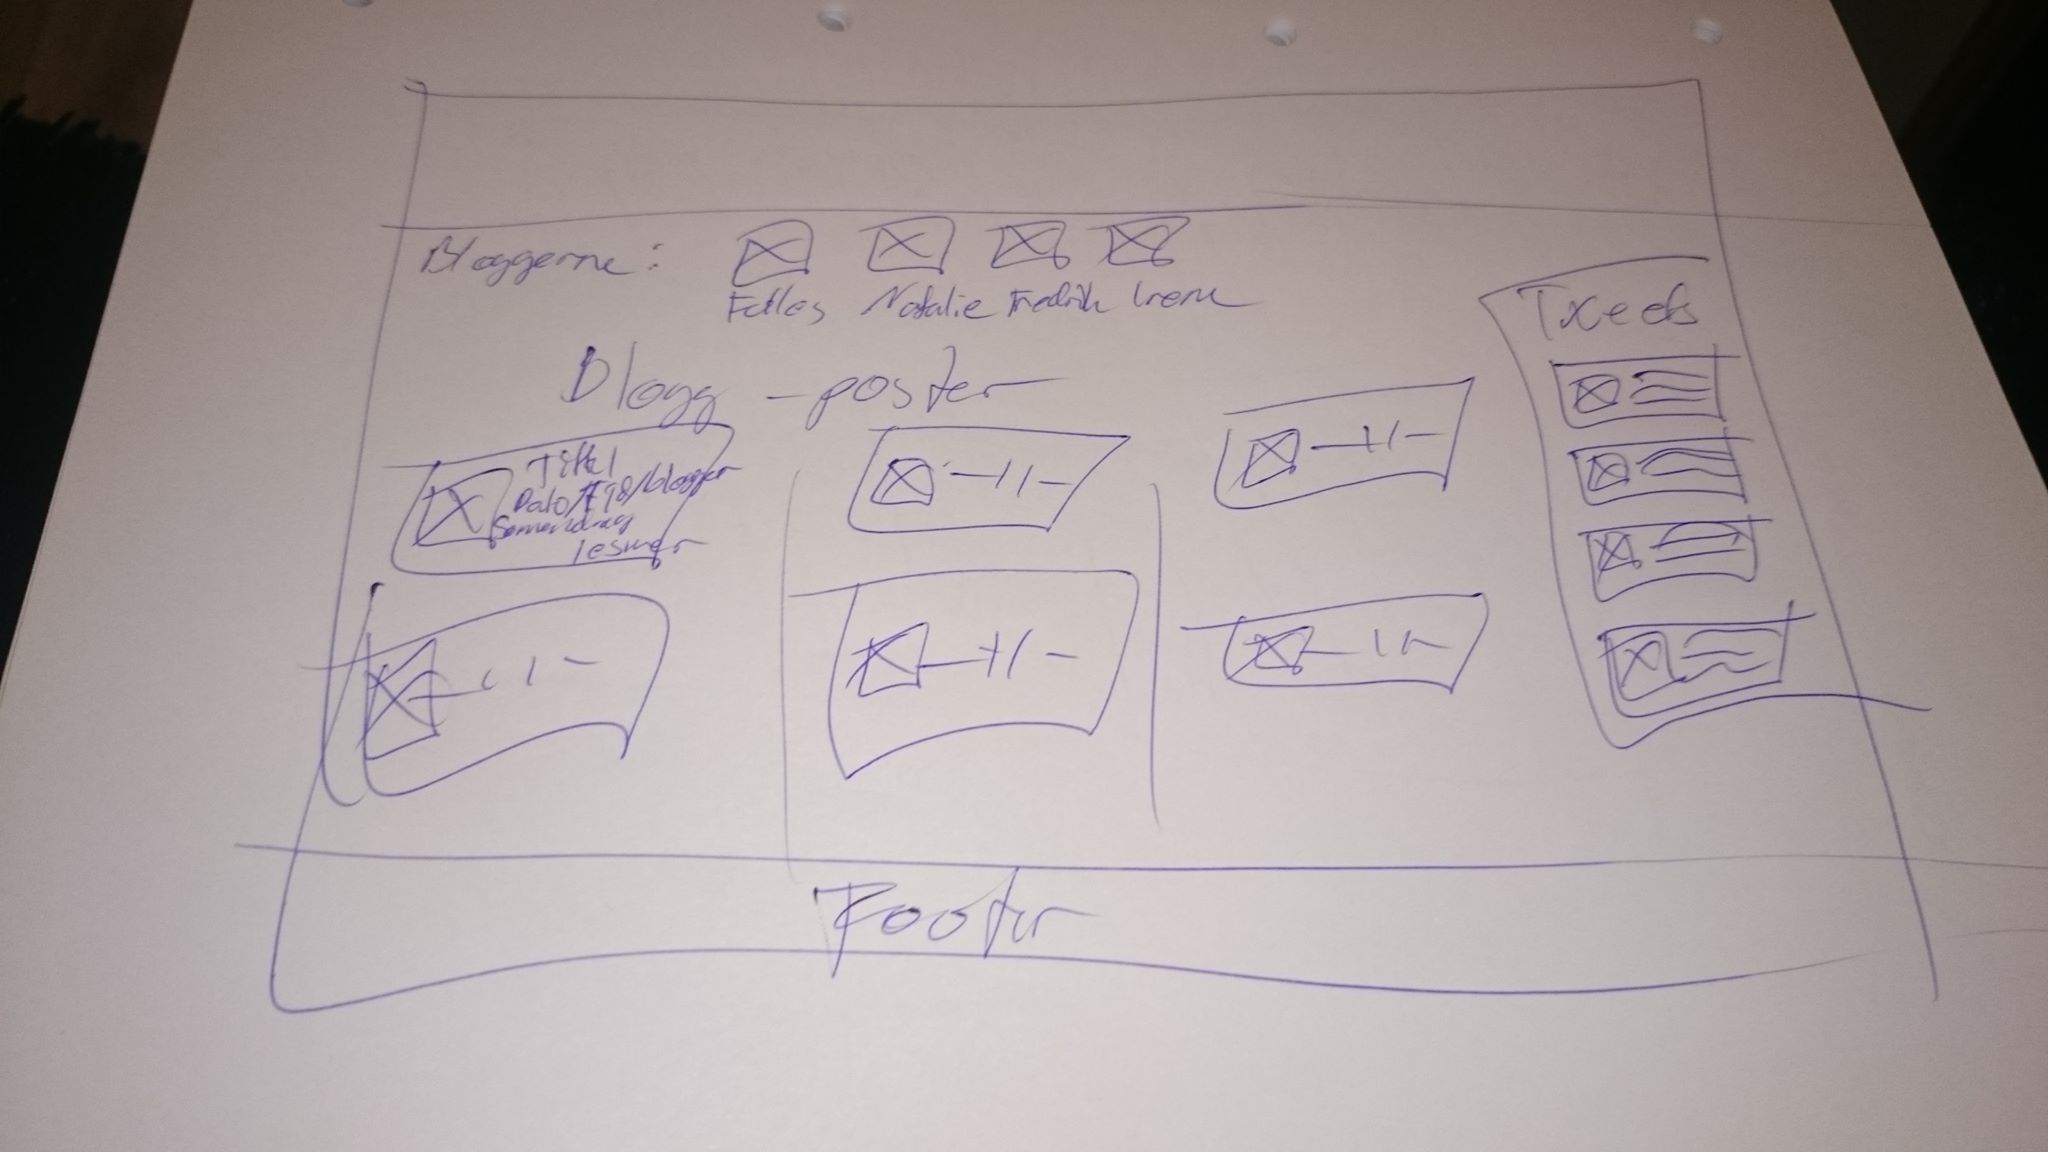 Bloggerne:
Felles Natalie Fredrik Irene
Tweets
Blogg-poster
Tittel
Dato/Tgs/blogger
Sammendrag
les mer
-||-
-||-
-||-
-||-
-||-
Footer